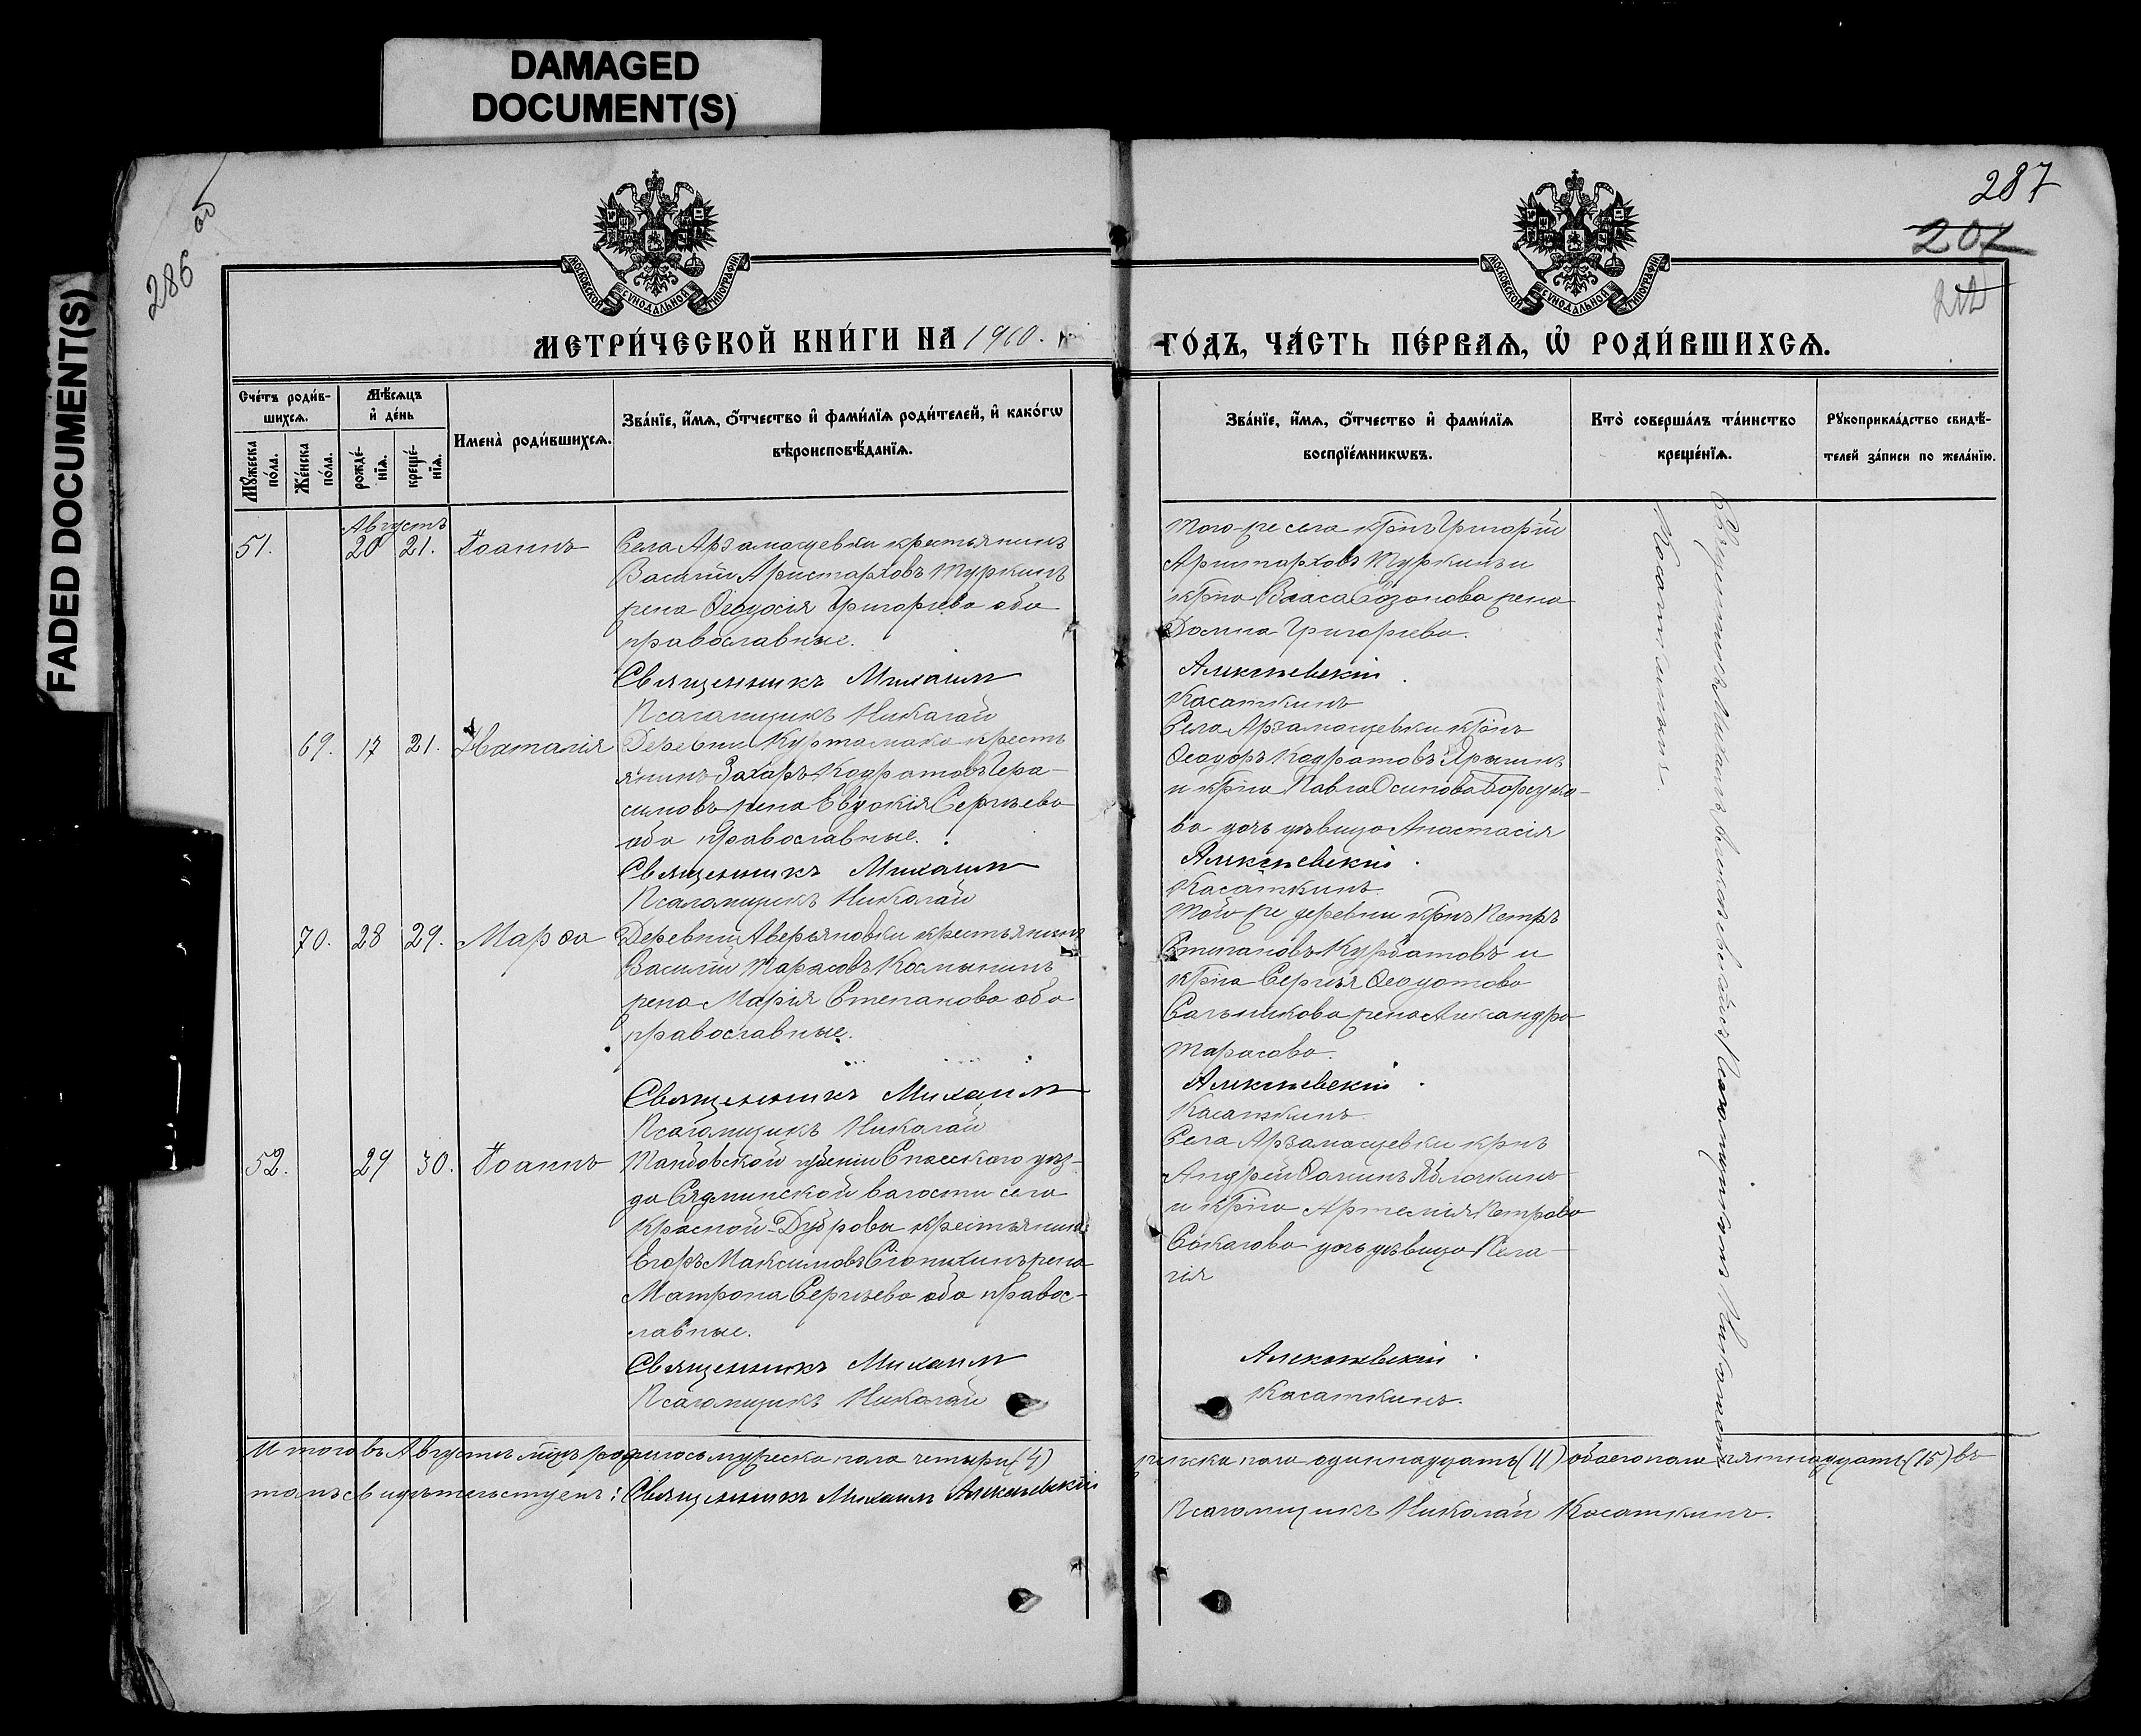 DAMAGED
DOCUMENT(S)
FADED DOCUMENT(S)
286 об
287
201
212
МОСКОВСКОЙ СѴНОДАЛЬНОЙ ТИПОГРАФІИ
МОСКОВСКОЙ СѴНОДАЛЬНОЙ ТИПОГРАФІИ
МЕТРИ́ЧЕСКОЙ КНИ́ГИ НА 1910.
ГО́ДЪ, ЧА́СТЬ ПЕ́РВАѦ, Ѡ҆ РОДИ́ВШИХСѦ.
Сче́тъ роди́в-
шихсѧ.
Мꙋ́жеска
по́ла.
Же́нска
по́ла.
Мѣ́сѧцъ
и҆ де́нь
рожде́-
нїѧ.
креще́-
нїѧ.
Имена̀ роди́вшихсѧ.
Зва́нїе, и҆́мѧ, ѻ҆́тчество и҆ фами́лїѧ роди́телей, и҆ како́гѡ
вѣроисповѣ́данїѧ.
Зва́нїе, и҆́мѧ, ѻ҆́тчество и҆ фами́лїѧ
воспрїе́мникѡвъ.
Кто̀ соверша́лъ та́инство
креще́нїѧ.
Рꙋкоприкла́дство свидѣ́-
телей за́писи по жела́нїю.
Августъ
51. 20 21. Іоаннъ
Села Арзамасцевки крестьянинъ
Василій Аристарховъ Туркинъ
жена Ѳеодосія Григорьева оба
православные.
Священникъ Михаилъ
Псаломщикъ Николай
Того-же села кр͠нъ Григорій
Аристарховъ Туркинъ и
кр͠на Власа Созонова жена
Домна Григорьева.
Алексѣевскій.
Касаткинъ
69. 17 21. Наталія
Деревни Куртамака кресть
янинъ Захаръ Кодратовъ Гера-
симовъ жена Евдокія Сергѣева
оба православные.
Священникъ Михаилъ
Псаломщикъ Николай
Села Арзамасцевки кр͠нъ
Ѳеодоръ Кодратовъ
и кр͠на Павла Осипова
ва дочь дѣвица Анастасія
Алексѣевскій.
Касаткинъ
70. 28 29. Марѳа
Деревни Аверьяновки крестьянинъ
Василій Тарасовъ Космынинъ
жена Марія Степанова оба
православные.
Священникъ Михаилъ
Псаломщикъ Николай
Той же деревни кр͠нъ Петръ
Степановъ Курбатовъ и
кр͠на Сергѣя Ѳеодотова
Сальникова жена Александра
Тарасова.
Алексѣевскій.
Касаткинъ
52. 29 30. Іоаннъ
Тамбовской губерніи Спасскаго уѣз-
да волости села
Красной-Дубровы крестьянинъ
Егоръ Максимовъ жена
Матрона Сергѣева оба правос-
лавные.
Священникъ Михаилъ
Псаломщикъ Николай
Села Арзамасцевки кр͠нъ
Андрей Ѳоминъ Яблочкинъ
и кр͠на Артемія Петрова
Сокалова дочь дѣвица Пела-
гія
Алексѣевскій.
Касаткинъ.
Священникъ Михаилъ Алексѣевскій съ Псаломщикомъ Николаемъ
Касаткинымъ.
Итого въ Августѣ мц͠ѣ родилось мужеска пола четыре (4) женска пола одиннадцать (11) обоего пола пятнадцать (15) въ
томъ свидѣтельствуемъ: Священникъ Михаилъ Алексѣевскій
Псаломщикъ Николай Касаткинъ.